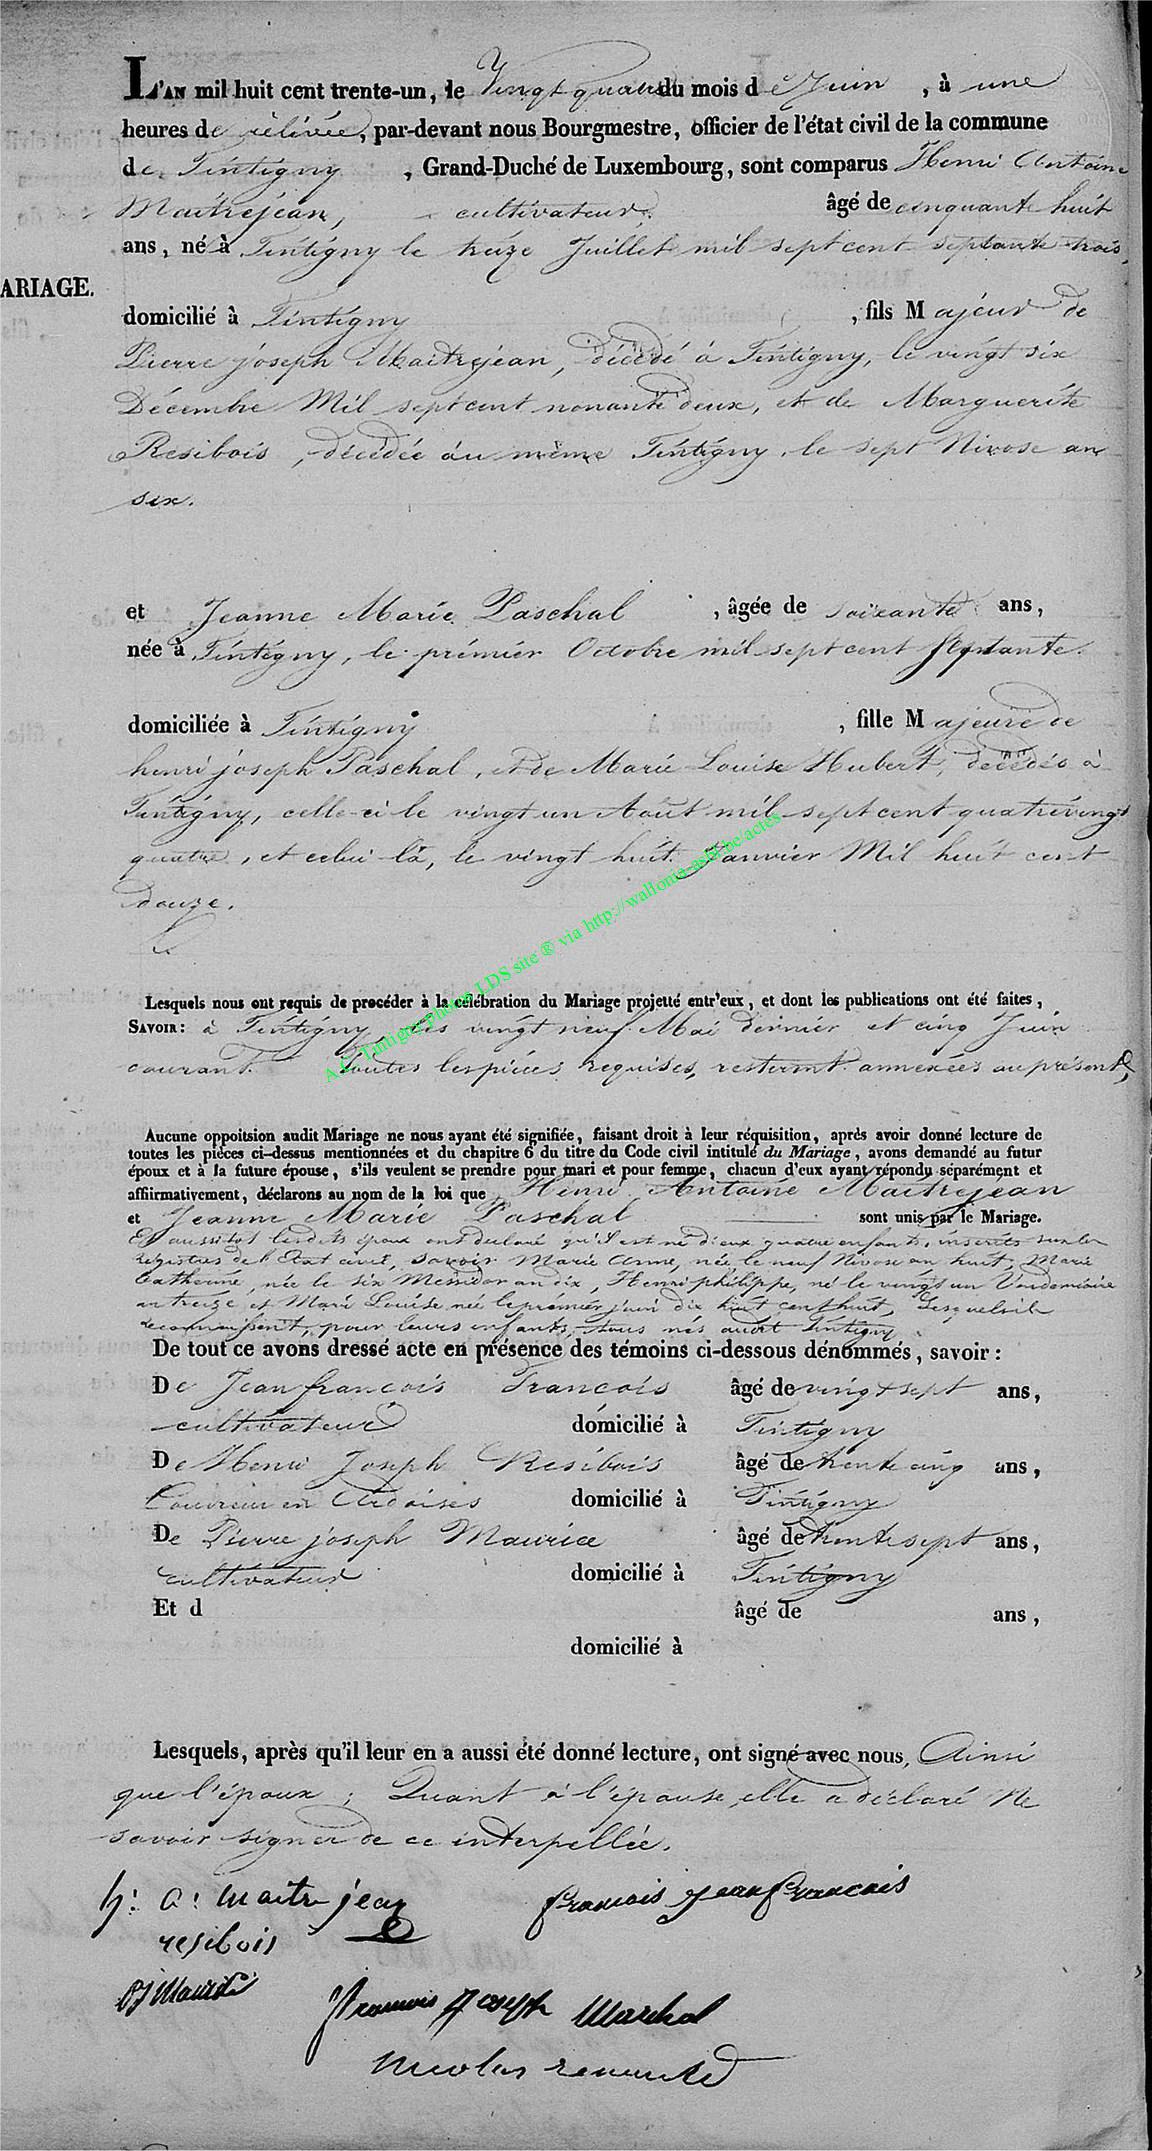 L'AN mil huit cent trente-un, le Vingt quatre du mois de Juin , à une
heures de relévée, par-devant nous Bourgmestre, officier de l'état civil de la commune
de Tintigny , Grand-Duché de Luxembourg, sont comparus Henri Antoine
Maitrejean, cultivateur. âgé de cinquante huit
ans, né à Tintigny le treize Juillet mil sept cent septante trois,
ARIAGE.
domicilié à Tintigny , fils Majeur de
Pierre joseph Maitrejean, décédé à Tintigny, le vingt six
Décembre Mil sept cent nonante deux, et de Marguerite
Resibois, décédée au même Tintigny, le sept Nivose an
six.
et Jeanne Marie Paschal , âgée de soixante ans,
née à Tintigny, le prémier Octobre mil sept cent septante.
domiciliée à Tintigny , fille Majeure de
henri joseph Paschal, et de Marie Louise Hubert, décédés à
Tintigny, celle-ci le vingt un Août mil sept cent quatrevingt
quatre, et celui là, le vingt huit Janvier Mil huit cent
douze.
A.C. Tintigny photos LDS site ® via http://wallonia-asbl.be/actes
Lesquels nous ont requis de procéder à la célébration du Mariage projetté entr'eux, et dont les publications ont été faites,
SAVOIR: à Tintigny, les vingt neuf Mai dernier et cinq Juin
courant. Toutes les piéces requises, resteront annexées au présent,
Aucune oppoitsion audit Mariage ne nous ayant été signifiée, faisant droit à leur réquisition, après avoir donné lecture de
toutes les pièces ci-dessus mentionnées et du chapitre 6 du titre du Code civil intitulé du Mariage, avons demandé au futur
époux et à la future épouse, s'ils veulent se prendre pour mari et pour femme, chacun d'eux ayant répondu séparément et
affiirmativement, déclarons au nom de la loi que Henri Antoine Maitrejean
et Jeanne Marie Paschal sont unis par le Mariage.
Et aussitot lesdits époux ont déclaré qu'il est né d'eux quatre enfants, inscrits sur les
régistres de l'Etat civil, savoir Marie Anne, née le neuf Nivose an huit, Marie
Catherine, née le six Messidor an dix, Henri philippe, né le vingt un Vendemiaire
an treize, et Marie Louise née le prémier juin dix huit cent huit, Lesquels ils
reconnaissent, pour leurs enfants, tous nés audit Tintigny
De tout ce avons dressé acte en présence des témoins ci-dessous dénommés, savoir:
De Jean françois François âgé de vingt sept ans,
cultivateur domicilié à Tintigny
De Henri Joseph Resibois âgé de trente cinq ans,
Couvreur en Ardoises domicilié à Tintigny
De Pierre joseph Maurice âgé de trente sept ans,
cultivateur domicilié à Tintigny
Et d âgé de ans,
domicilié à
Lesquels, après qu'il leur en a aussi été donné lecture, ont signé avec nous, Ainsi
que l'époux; Quant à l'épouse elle a déclaré Ne
savoir signer de ce interpellée.
h: a: maitre jean françois jean françois
resibois
PJ Maurice François Joseph Marchal
nicolas